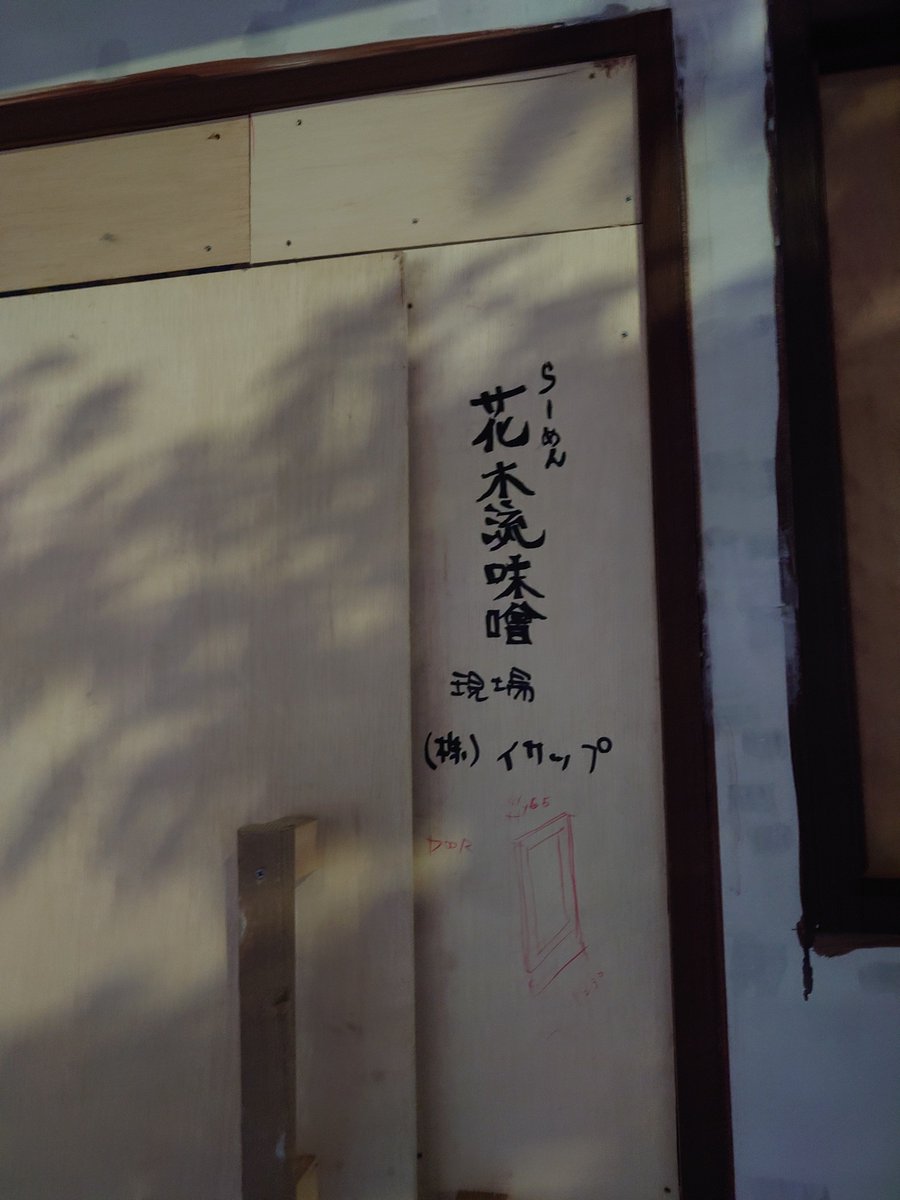 らーめん
花木流味噌
現場
(株)イサップ
DOOR